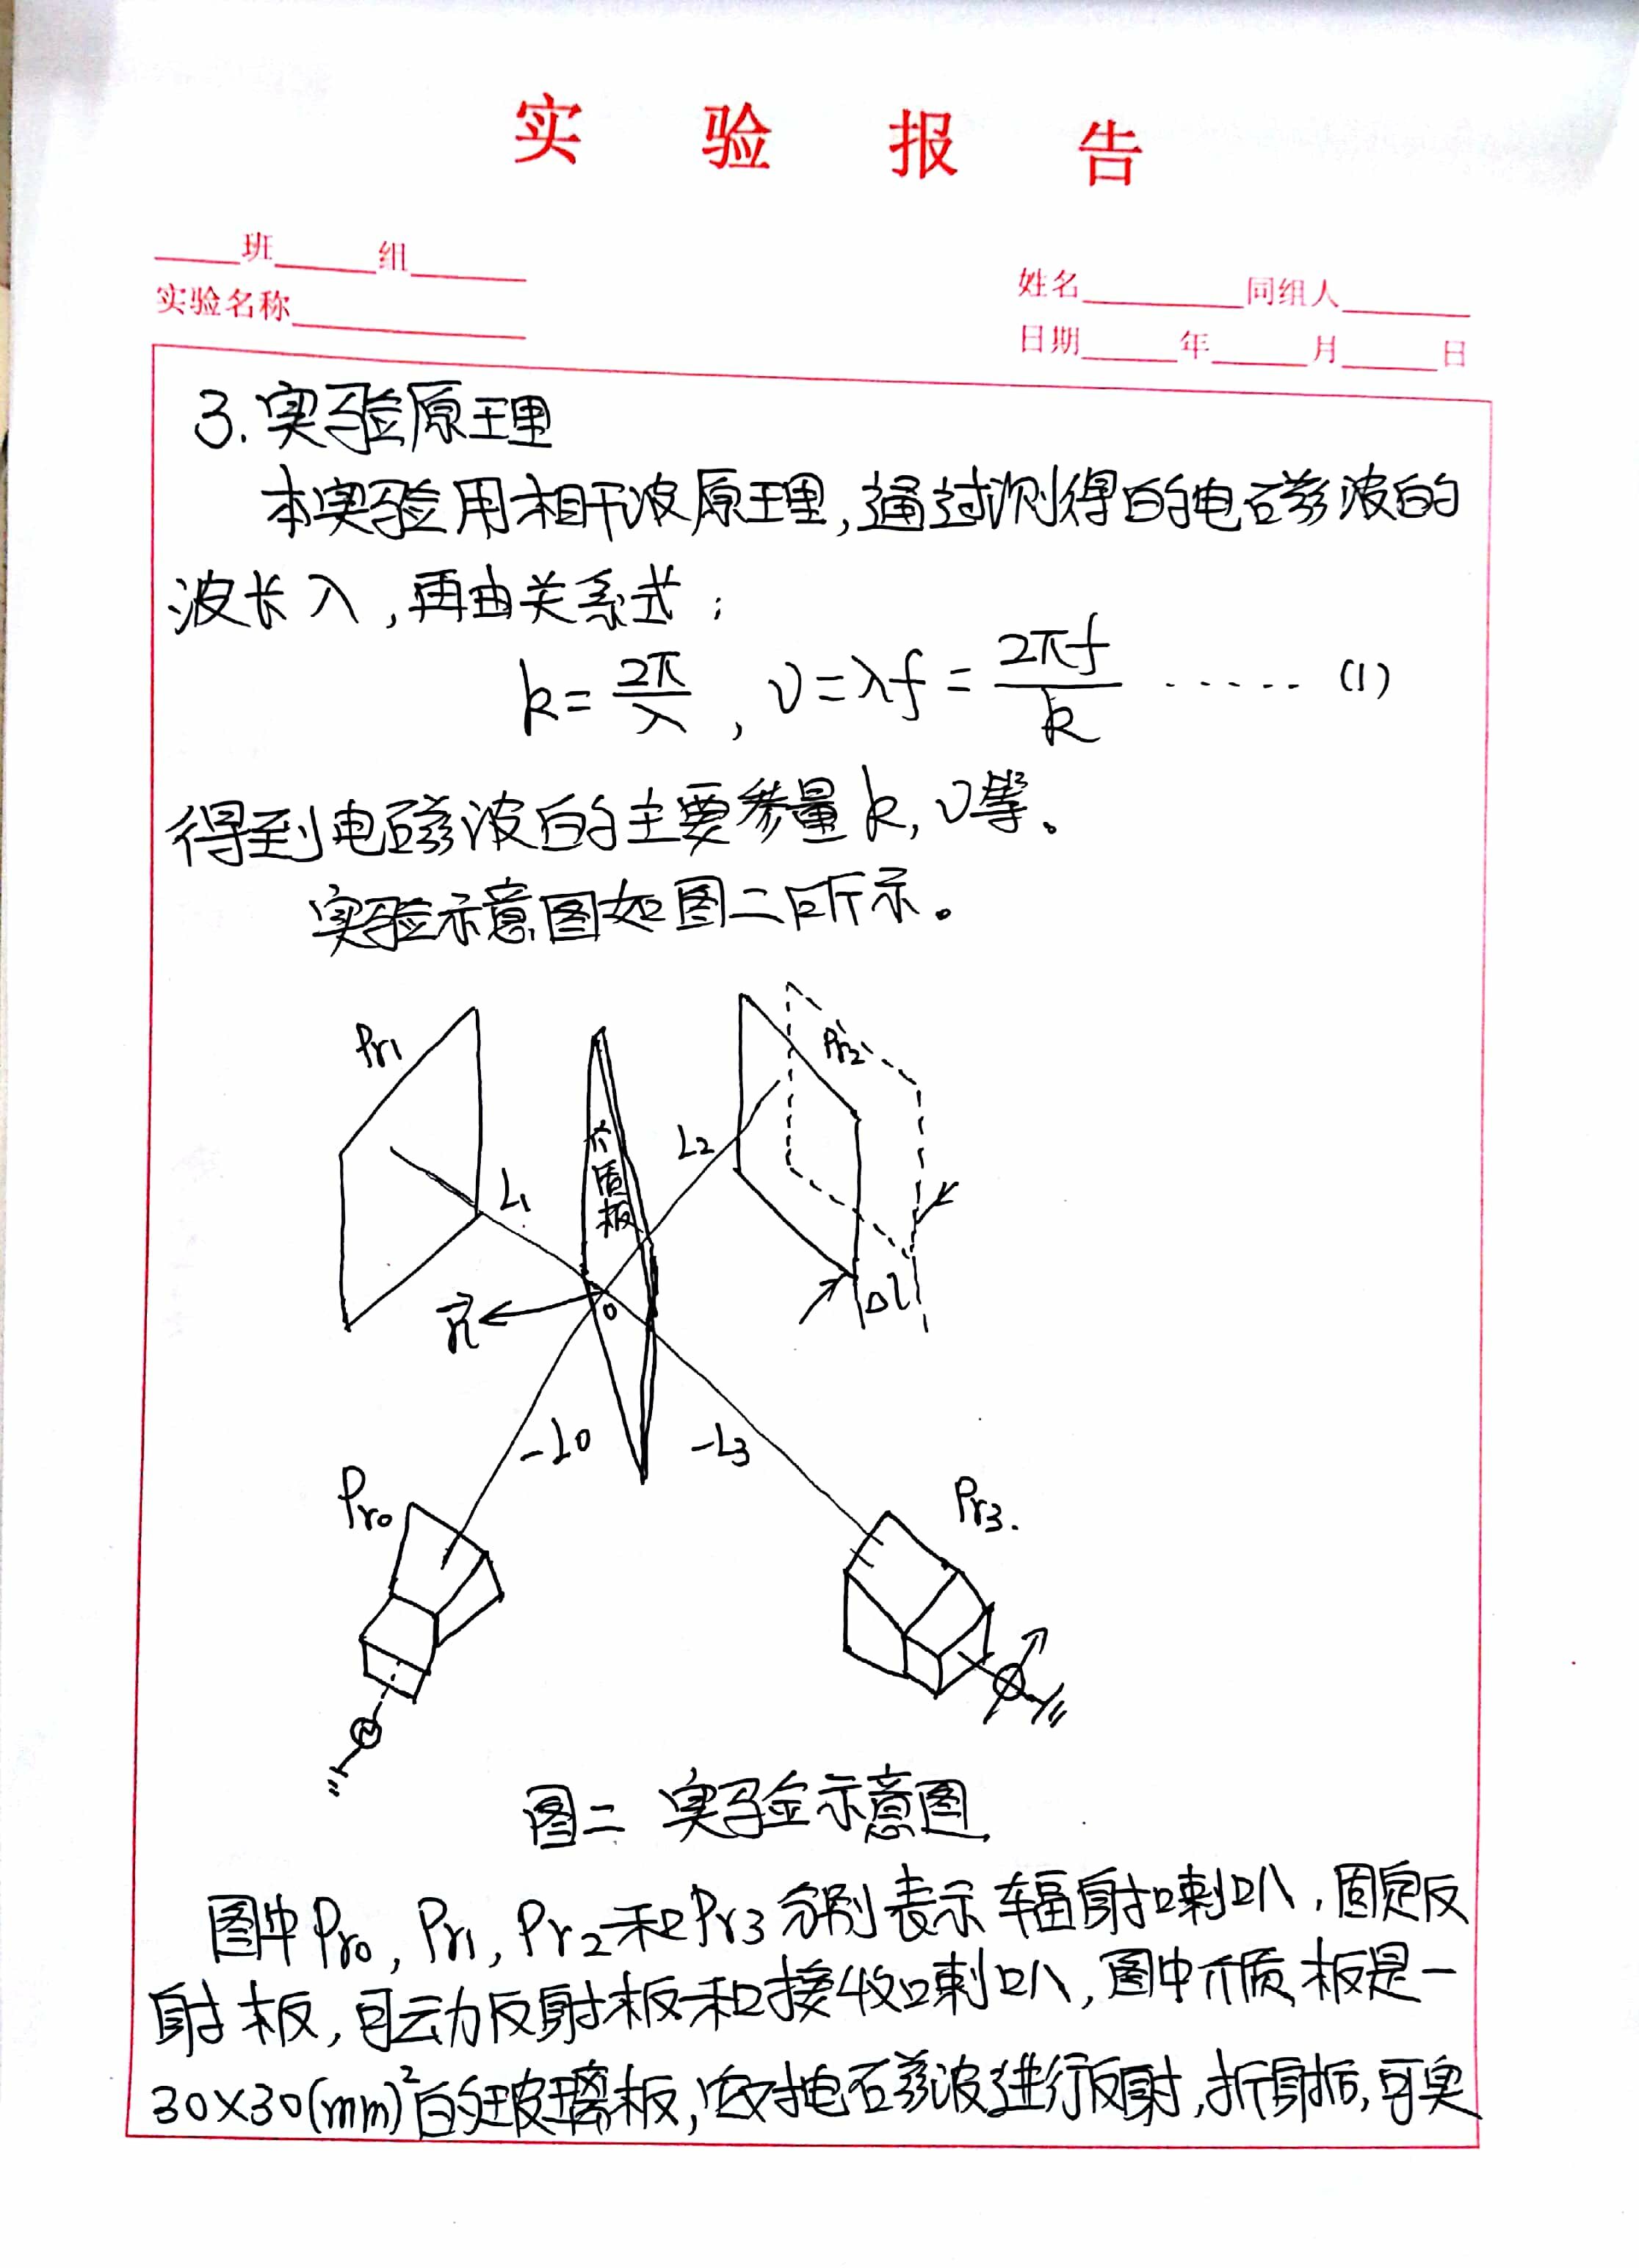 实验报告
____班____组____
姓名____同组人____
实验名称____
日期____年____月____日
3.实验原理
本实验用相干波原理,通过测得的电磁波的
波长λ,再由关系式;
k=2π/λ, υ=λf=2πf/k ······ (1)
得到电磁波的主要参量k,υ等。
实验示意图如图二所示。
Pr1
Pr2
介质板
L2
L1
n⃗
0
Δl
-L0
-L3
Pr0
Pr3.
图二 实验示意图
图中Pr0,Pr1,Pr2和Pr3分别表示辐射喇叭,固定反
射板,可动反射板和接收喇叭,图中介质板是一
30×30(mm)²的玻璃板,它对电磁波进行反射,折射后,可实